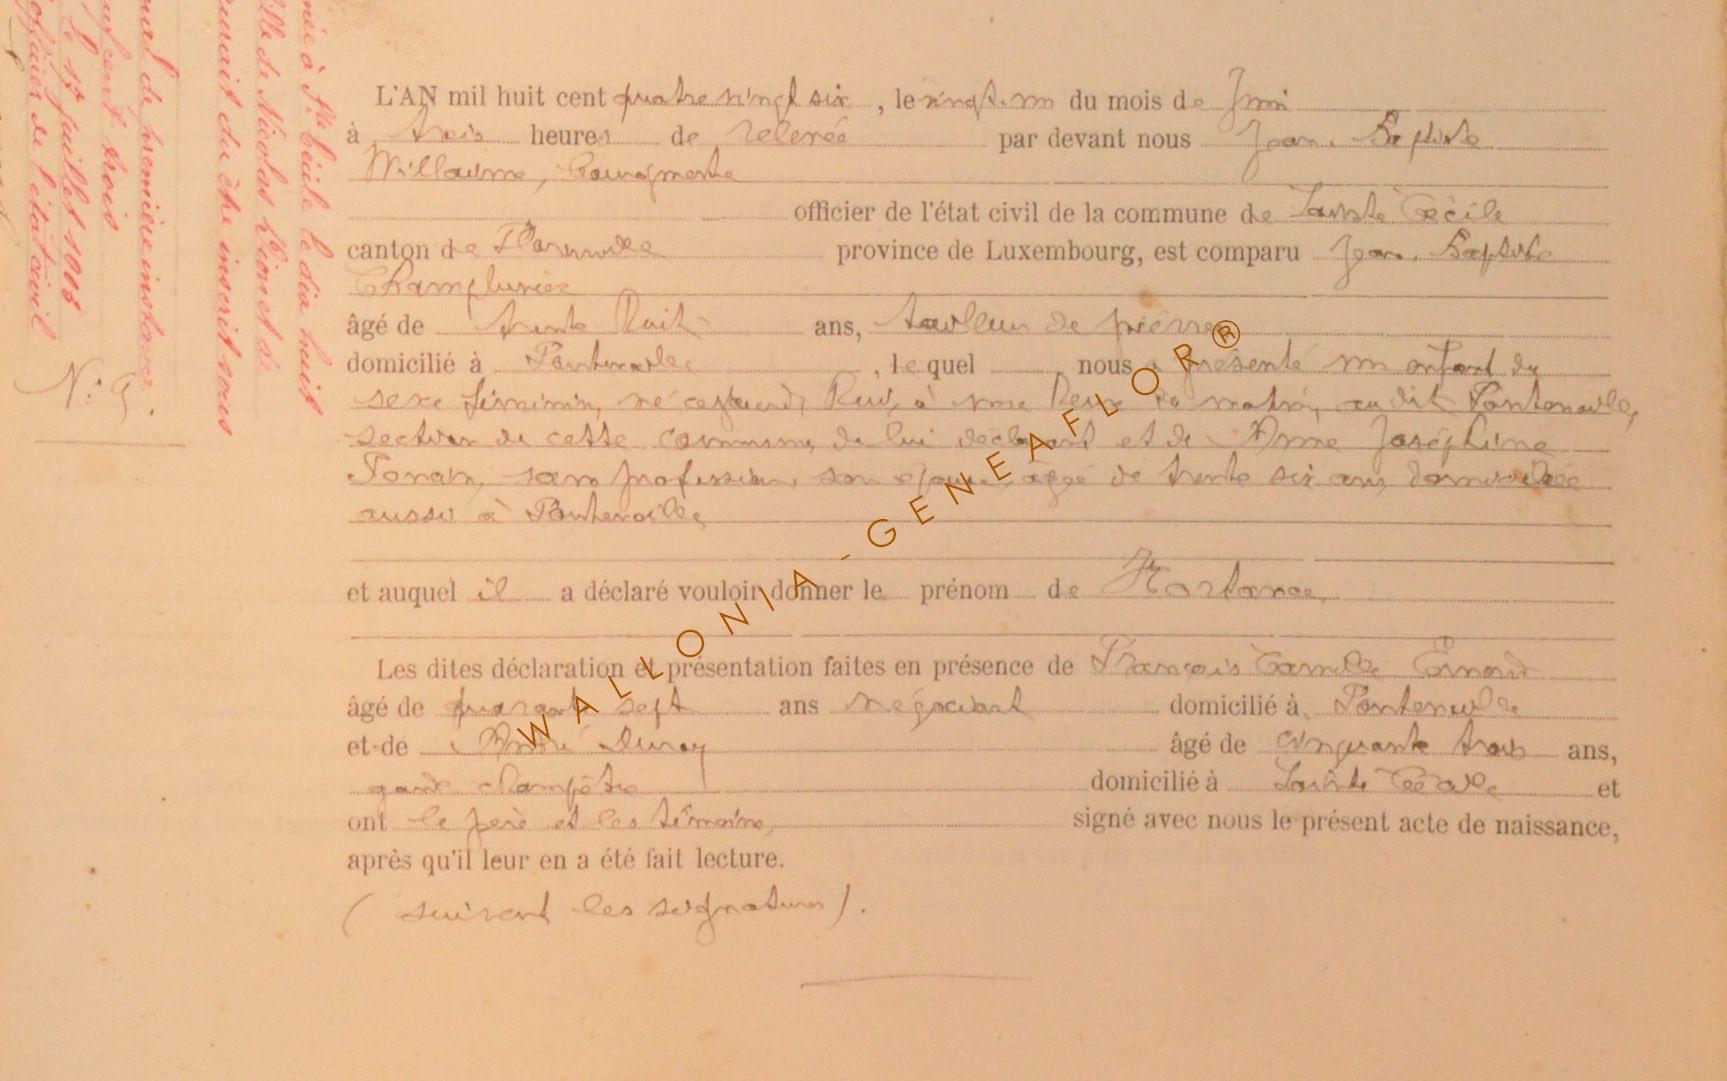 L'AN mil huit cent quatre vingt six, le vingt-un du mois de Juin
à trois heures de relevée par devant nous Jean-Baptiste
Willaume, Bourgmestre
officier de l'état civil de la commune de Sainte Cécile
canton de Florenville province de Luxembourg, est comparu Jean-Baptiste
Champlunier
âgé de trente huit ans, tailleur de pierres
domicilié à Fontenoille, lequel nous a présenté un enfant du
sexe féminin, né cejourd'hui, à une heure du matin, au dit Fontenoille,
section de cette commune, de lui déclarant et de Anne Joséphine
sans profession, son épouse, âgée de trente six ans, domiciliée
aussi à Fontenoille
et auquel il a déclaré vouloir donner le prénom de Hortance,
Les dites déclaration et présentation faites en présence de François Camille Emond
âgé de quarante sept ans négociant domicilié à Fontenoille
et de André Duroy âgé de cinquante trois ans,
garde champêtre domicilié à Sainte Cécile et
ont le père et les témoins, signé avec nous le présent acte de naissance,
après qu'il leur en a été fait lecture.
(suivent les signatures).
N: 9.
née à Ste Cécile le dix huit
fille de Nicolas Lion et de
du être inscrit sous
de première instance
trois
le juillet 1903
officier de l'état civil
WALLONIA-GENEAFLOR®